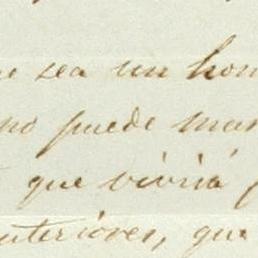 sea un hom
no puede man
que viviria
anteriores, que